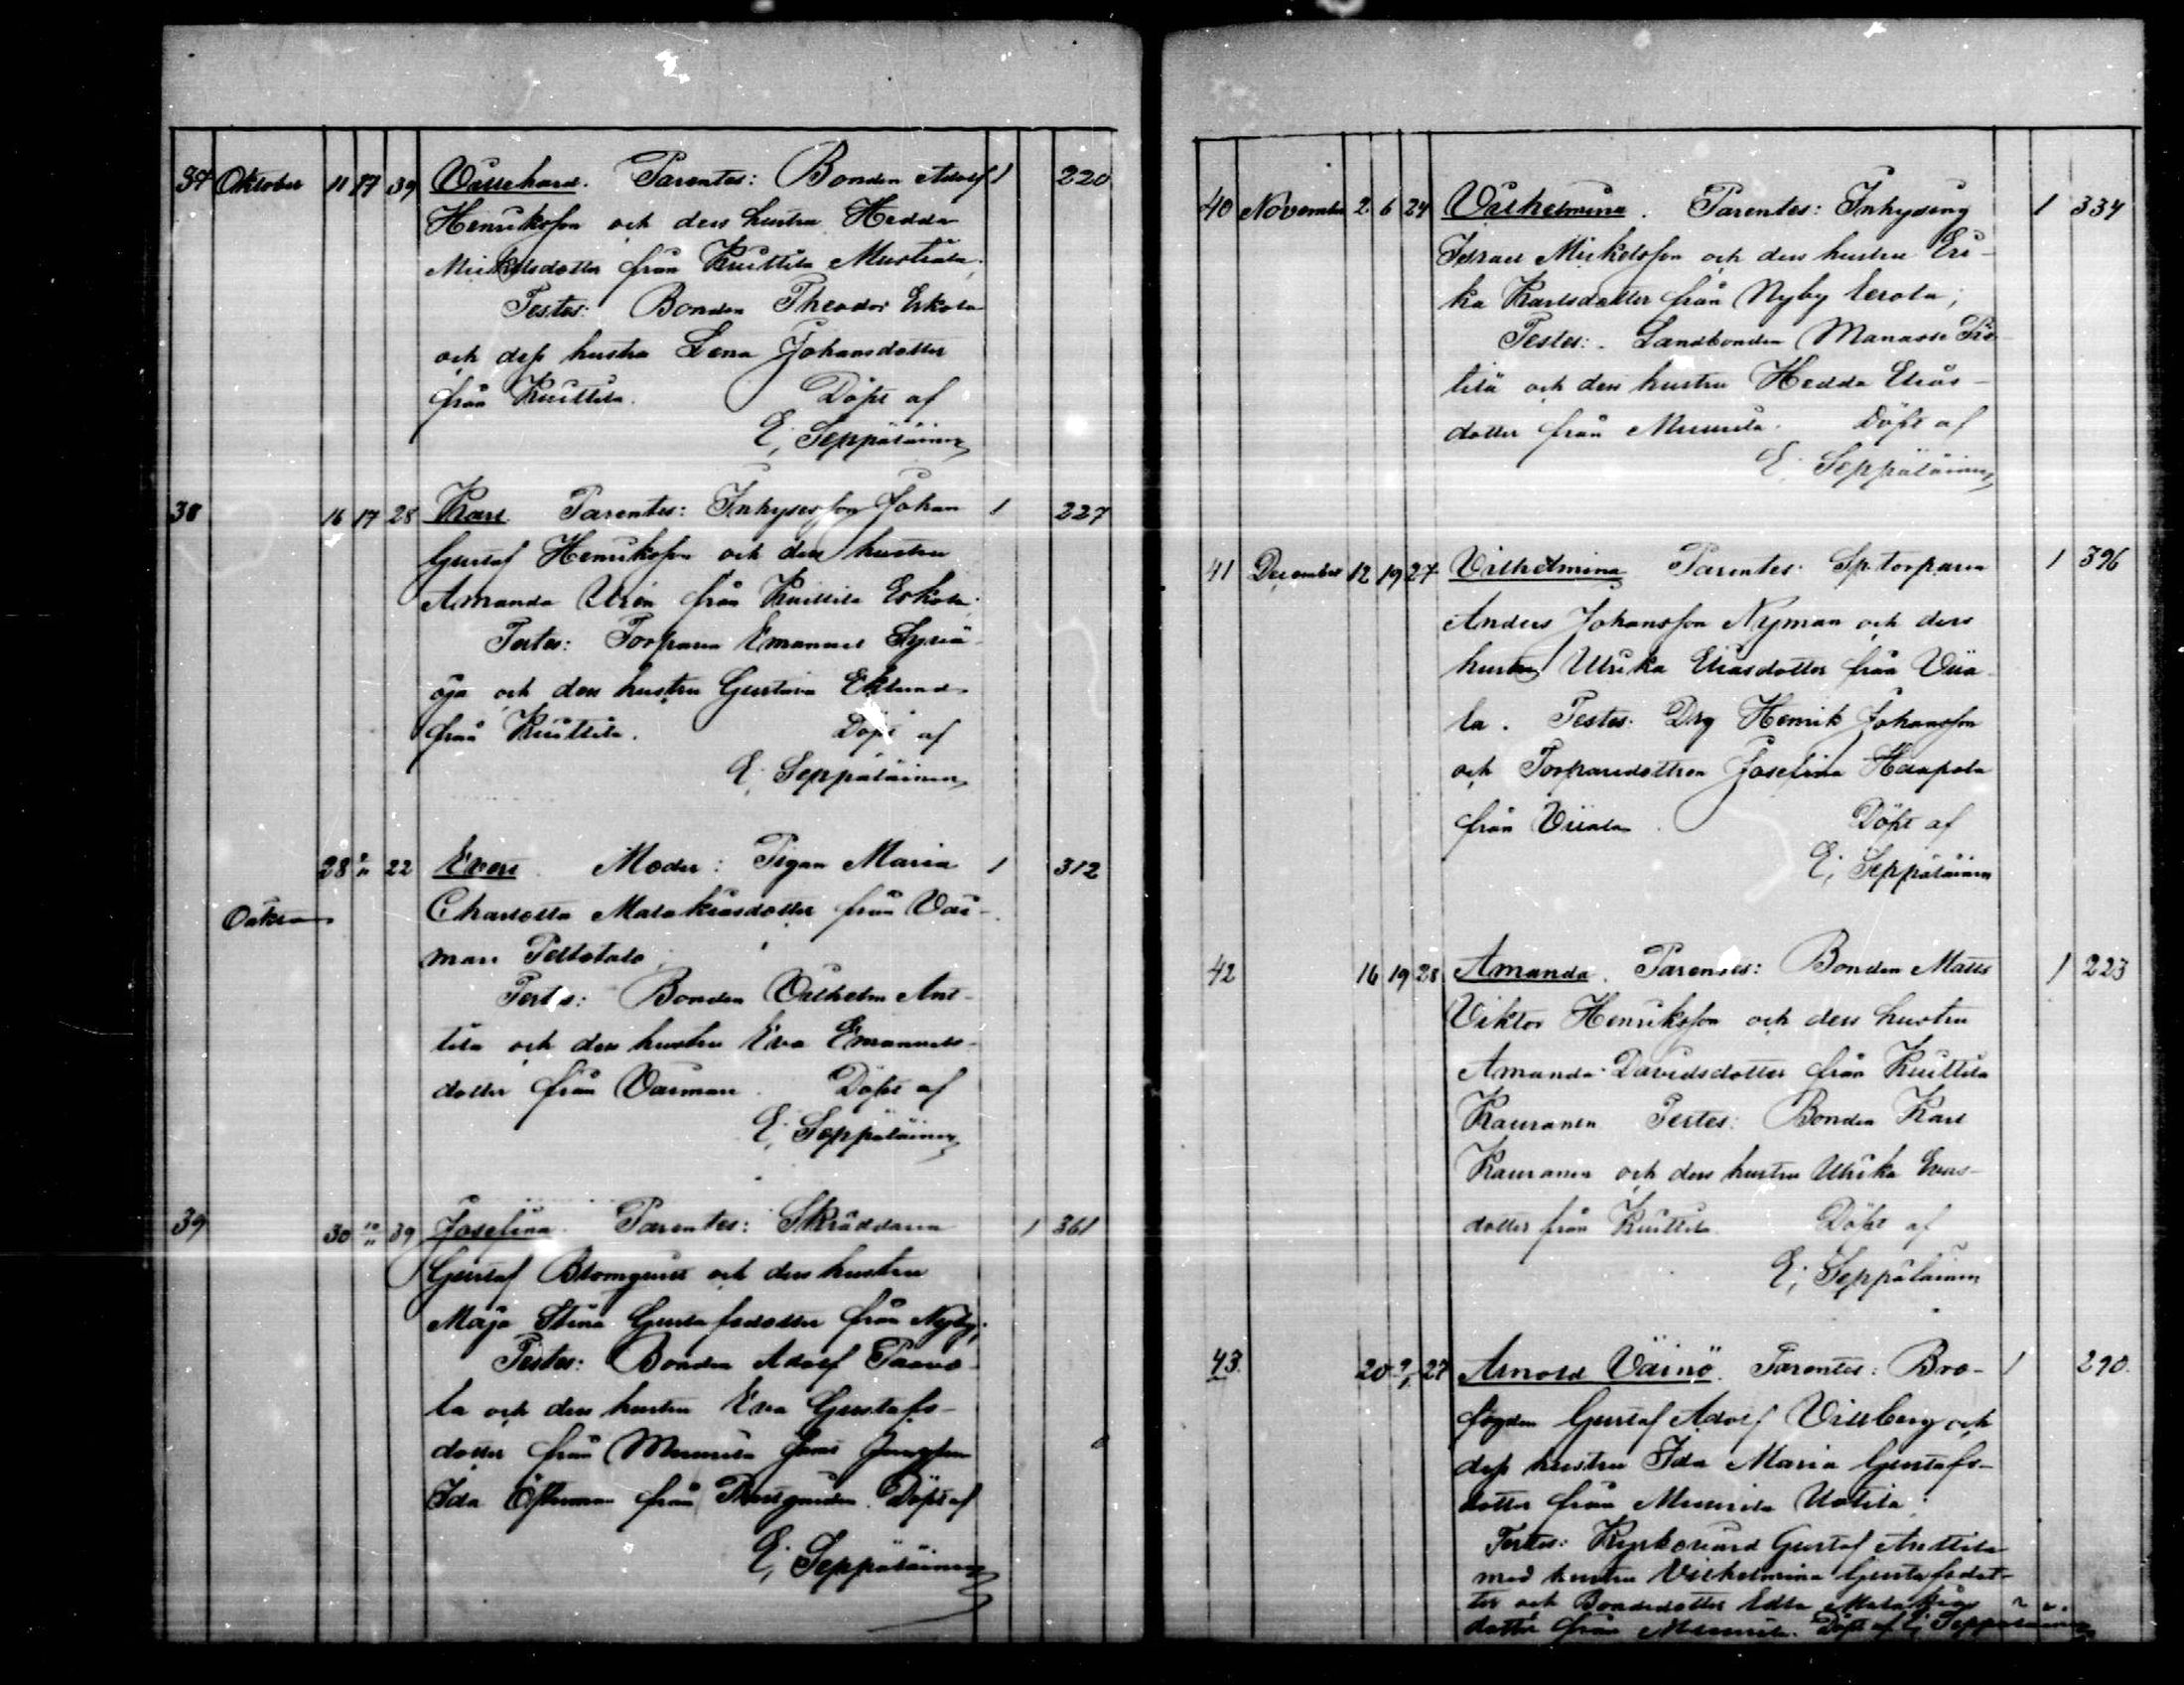 37 Oktober 11 17 39 Villehard. Parentes: Bonden Adolf 1 220
Henriksson och dess hustru Hedda
Mickelsdotter från Kuittila Mustiala.
Testes: Bonden Theodor Eskola
och dess hustru Lena Johansdotter
från Kuittila. Döpt af
E; Seppäläinen
38 16 17 28 Karl. Parentes: Inhyseson Johan 1 227
Gustaf Henriksson och dess hustru
Amanda Urén från Kuittila Eskola.
Testes: Torparen Emanuel Syriä-
oja och dess hustru Gustava Eklund
från Kuittila. Döpt af
E; Seppäläinen
28 2/11 22 Evert. Moder: Pigan Maria 1 312
Oäkta Charlotta Malakiasdotter från Var-
mari Peltotalo.
Testes: Bonden Vilhelm Ant-
tila och dess hustru Eva Emanuels-
dotter från Varmari. Döpt af
E; Seppäläinen
39 30 10/11 39 Josefina. Parentes: Skräddaren 1 361
Gustaf Blomqvist och dess hustru
Maja Stina Gustafsdotter från Nyby;
Testes: Bonden Adolf Paavo-
la och dess hustru Eva Gustafs-
dotter från Munnila samt Jungfrun
Ida Öhman från Prestgården. Döpt af
E; Seppäläinen
40 November 2 6 24 Vilhelmina. Parentes: Inhysing 1 334
Israel Mickelsson och dess hustru Eri-
ka Karlsdotter från Nyby Eerola;
Testes: Landbonden Manasse
och dess hustru Hedda Elias-
dotter från Munnila. Döpt af
E; Seppäläinen
41 December 12 19 27 Vilhelmina Parentes: Sp. torparen 1 396
Anders Johansson Nyman och dess
hustru Ulrika Eliasdotter från Viia-
la. Testes: Drg Henrik Johansson
och Torparedottren Josefina Haapala
från Viiala. Döpt af
E; Seppäläinen
42 16 19 28 Amanda. Parentes: Bonden Matts 1 223
Viktor Henriksson och dess hustru
Amanda Davidsdotter från Kuittila
Kauranen Testes: Bonden Karl
Kauranen och dess hustru Ulrika Evers-
dotter från Kuittila. Döpt af
E; Seppäläinen
43. 20 27 Arnold Väinö. Parentes: Bro- 1 290.
fogden Gustaf Adolf Villberg och
dess hustru Ida Maria Gustafs-
dotter från Munnila Uotila.
Testes: Kyrkovärd Gustaf Anttila
med hustru Vilhelmina Gustafsdot-
ter och Bondedotter Edla Malakias
dotter från Munnila. Döpt af E; Seppäläinen